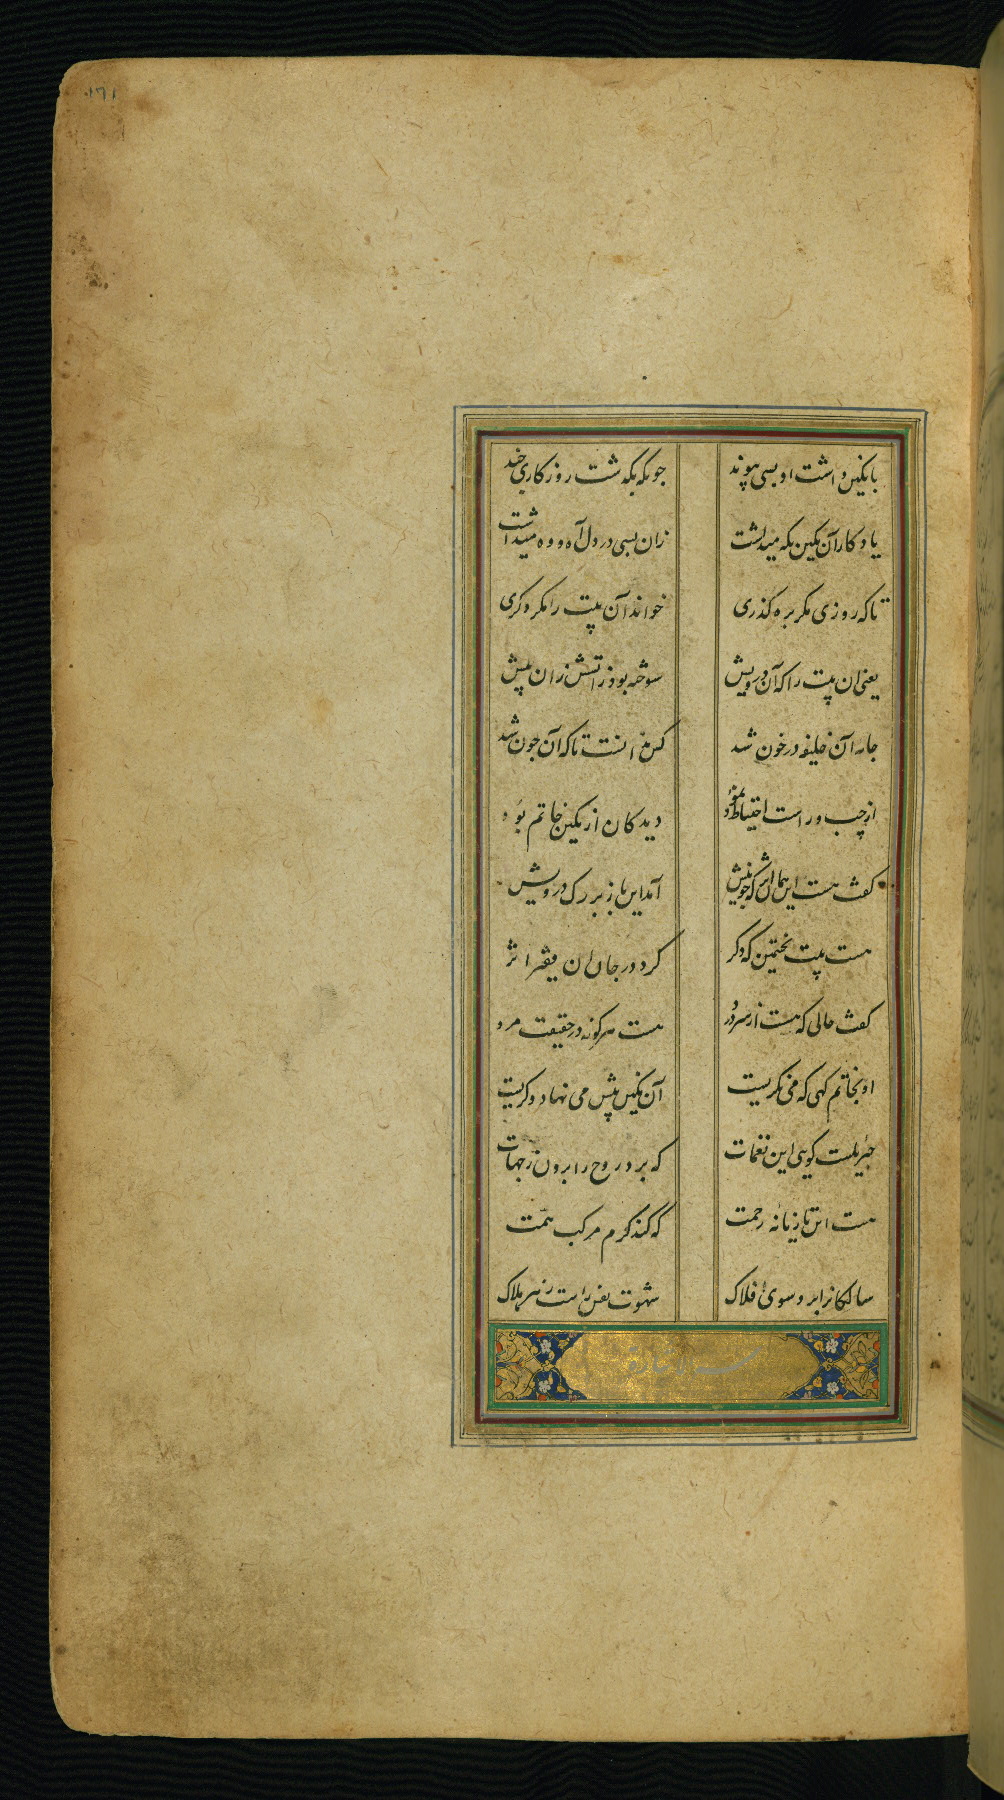 ۱۶۱
با نگین داشت او بسی پیوند
چونکه بگذشت روزگاری چند
یادگار آن نگین نگه میداشت
زان بسی در دل آه و وه میداشت
تا که روزی مگر بره گذری
خواند آن بیت را مگر دگری
یعنی آن بیت را که آن درویش
سوخته بود ز آتشش زان پیش
جامه آن خلیفه در خون شد
کس ندانست تا که آن چون شد
از چپ و راست احتیاط نمود
دیدکان از نگین خاتم بود
گفت هست این همان اثر که چو نیش
آمد این باز بر رگ درویش
هست بیت نخستین که دگر
کرد در جان آن فقیر اثر
گفت حالی که هست از سر درد
هست هرگونه در حقیقت مرد
او بخاتم گهی که می نگریست
آن نگین پیش می نهاد و گریست
جبرئیلست گویی این نغمات
که برد روح را برون ز جهات
هست این تازیانه رحمت
که کند گرم مرکب همت
سالکانرا برد سوی افلاک
شهوت نفس راست زهر هلاک